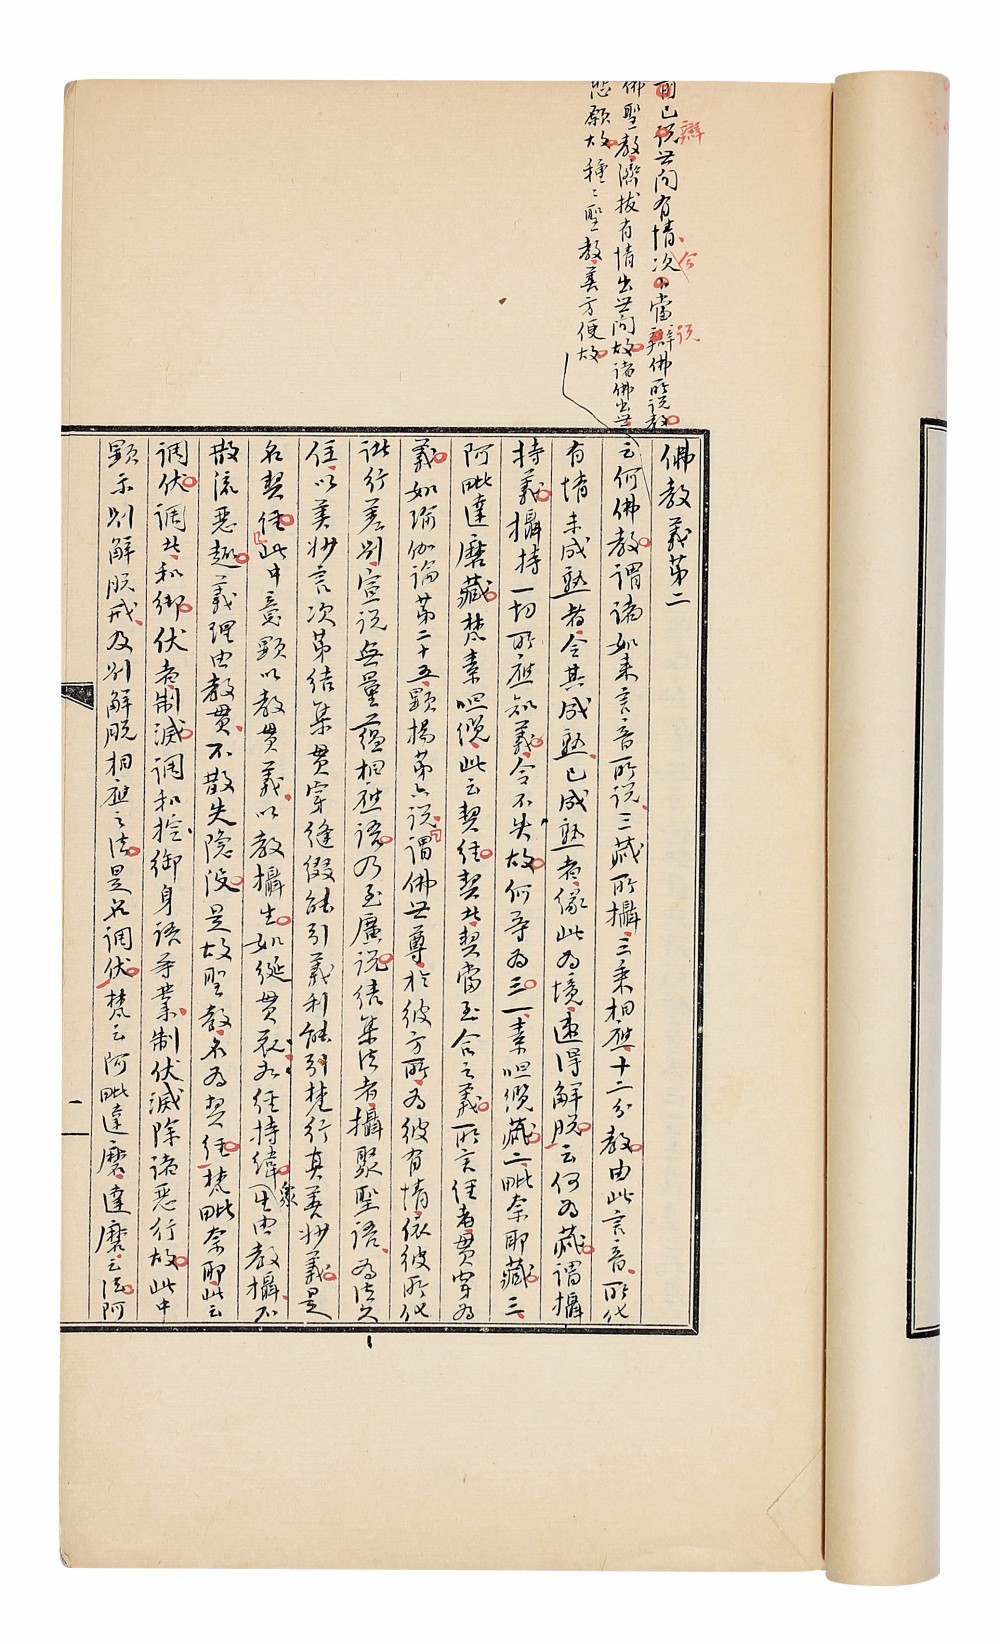 前已說世间有情次當辯佛所说教
辯
今
说
佛聖教濟拔有情出世间故诸佛出世
悲願故種種聖教善方便故
佛教義第二
云何佛教謂诸如来言音所说三藏所攝三乘相應十二分教由此言音所化
有情未成熟者令其成熟已成熟者缘此为境速得解脱云何为藏謂攝
持義攝持一切所應知義令不失故何等为三一素呾缆藏二毗奈耶藏三
阿毗達磨藏梵素呾缆此云契经契者契當至合之義所言经者贯穿为
義如瑜伽論第二十五顯揚第六说謂佛世尊於彼方所为彼有情依彼所化
诸行差别宣说無量蕴相應语乃至廣说结集法者攝聚聖语为法久
住以美妙言次第结集贯穿缝缀能引義利能引梵行真善妙義是
名契经此中意顯以教贯義以教攝生如綖贯花如经持緯衆生由教攝不
散流惡趣義理由教贯不散失隐没是故聖教名为契经梵毗奈耶此云
调伏调者和御伏者制滅调和控御身语等業制伏滅除诸惡行故此中
顯示别解脱戒及别解脱相應之法是名调伏梵云阿毗達磨達磨云法阿
一